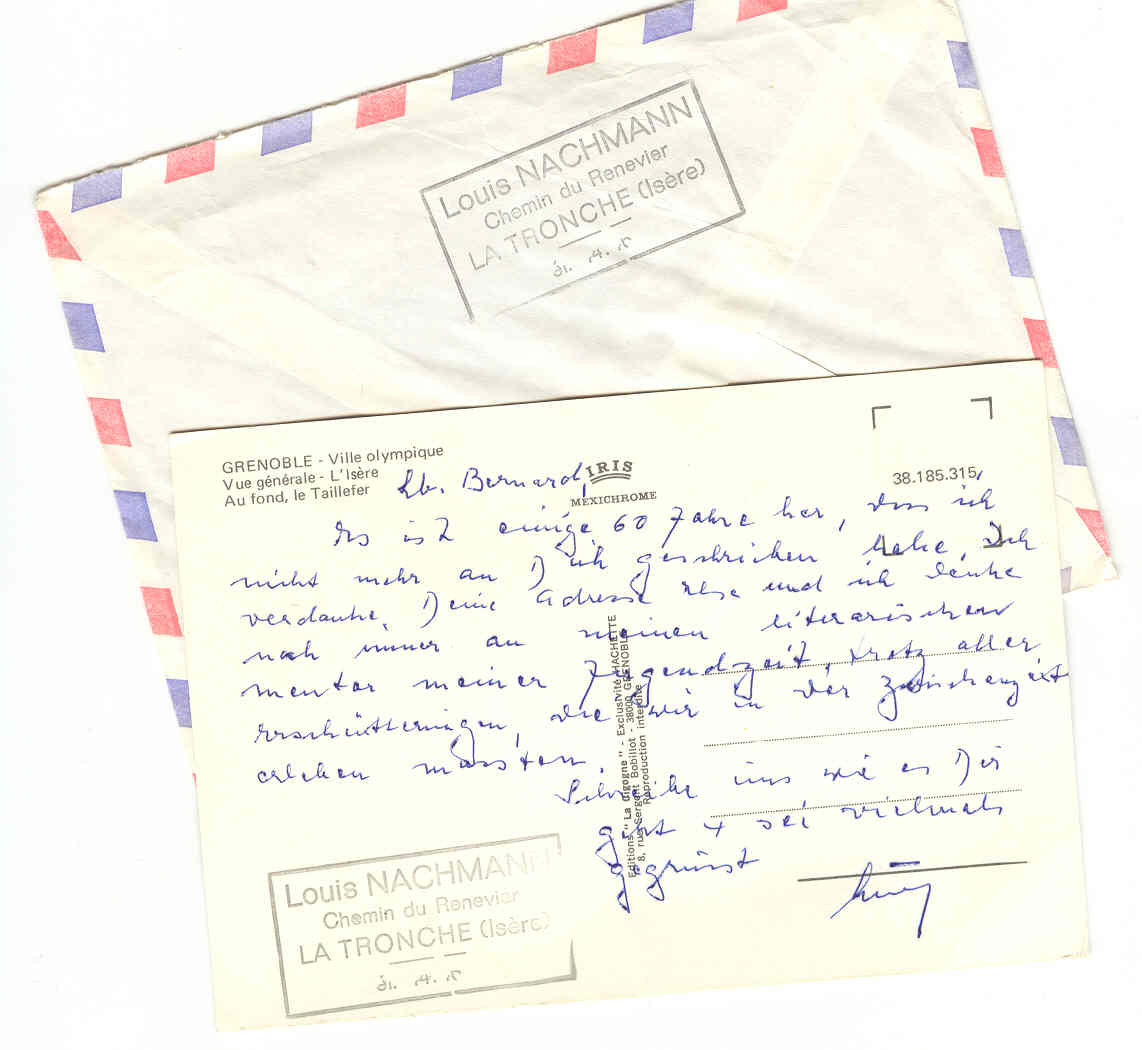 Louis NACHMANN
Chemin du Renevier
LA TRONCHE (Isère)
GRENOBLE - Ville olympique
Vue générale - L'Isère
Au fond, le Taillefer
IRIS
MEXICHROME
38.185.315
Lb. Bernard,
Es ist einige 60 Jahre her, dass ich
nicht mehr an Dich geschrieben habe. Ich
verdanke Deine Adresse und ich denke
noch immer an meinen literarischen
mentor meiner Jugendzeit, trotz aller
erschütterungen, die wir in der Zwischenzeit
erleben mussten.
Schreibe uns wie es Dir
geht + sei vielmals
gegrüsst
Editions "La Cigogne" - Exclusivité HACHETTE
8, rue Sergent Bobillot - 38000 GRENOBLE
Reproduction interdite
Louis NACHMANN
Chemin du Renevier
LA TRONCHE (Isère)